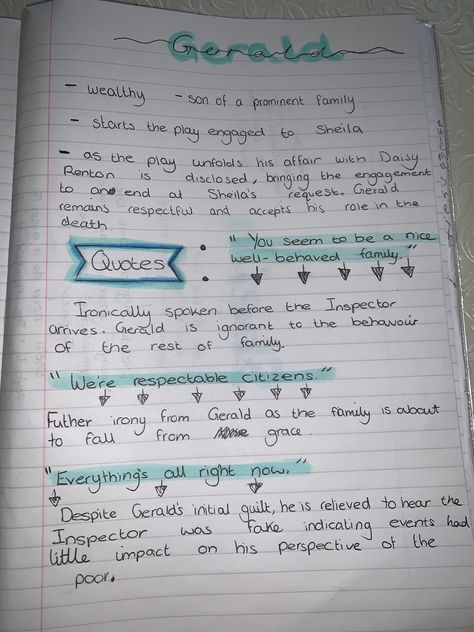 Gerald
- wealthy - son of a prominent family
- starts the play engaged to Sheila
- as the play unfolds his affair with Daisy
Renton is disclosed, bringing the engagement
to an end at Sheila's request. Gerald
remains respectful and accepts his role in the
death.
Quotes : "You seem to be a nice
well-behaved family."
Ironically spoken before the Inspector
arrives. Gerald is ignorant to the behaviour
of the rest of family.
"We're respectable citizens."
Futher irony from Gerald as the family is about
to fall from grace.
"Everything's all right now."
Despite Gerald's initial guilt, he is relieved to hear the
Inspector was fake indicating events had
little impact on his perspective of the
poor.